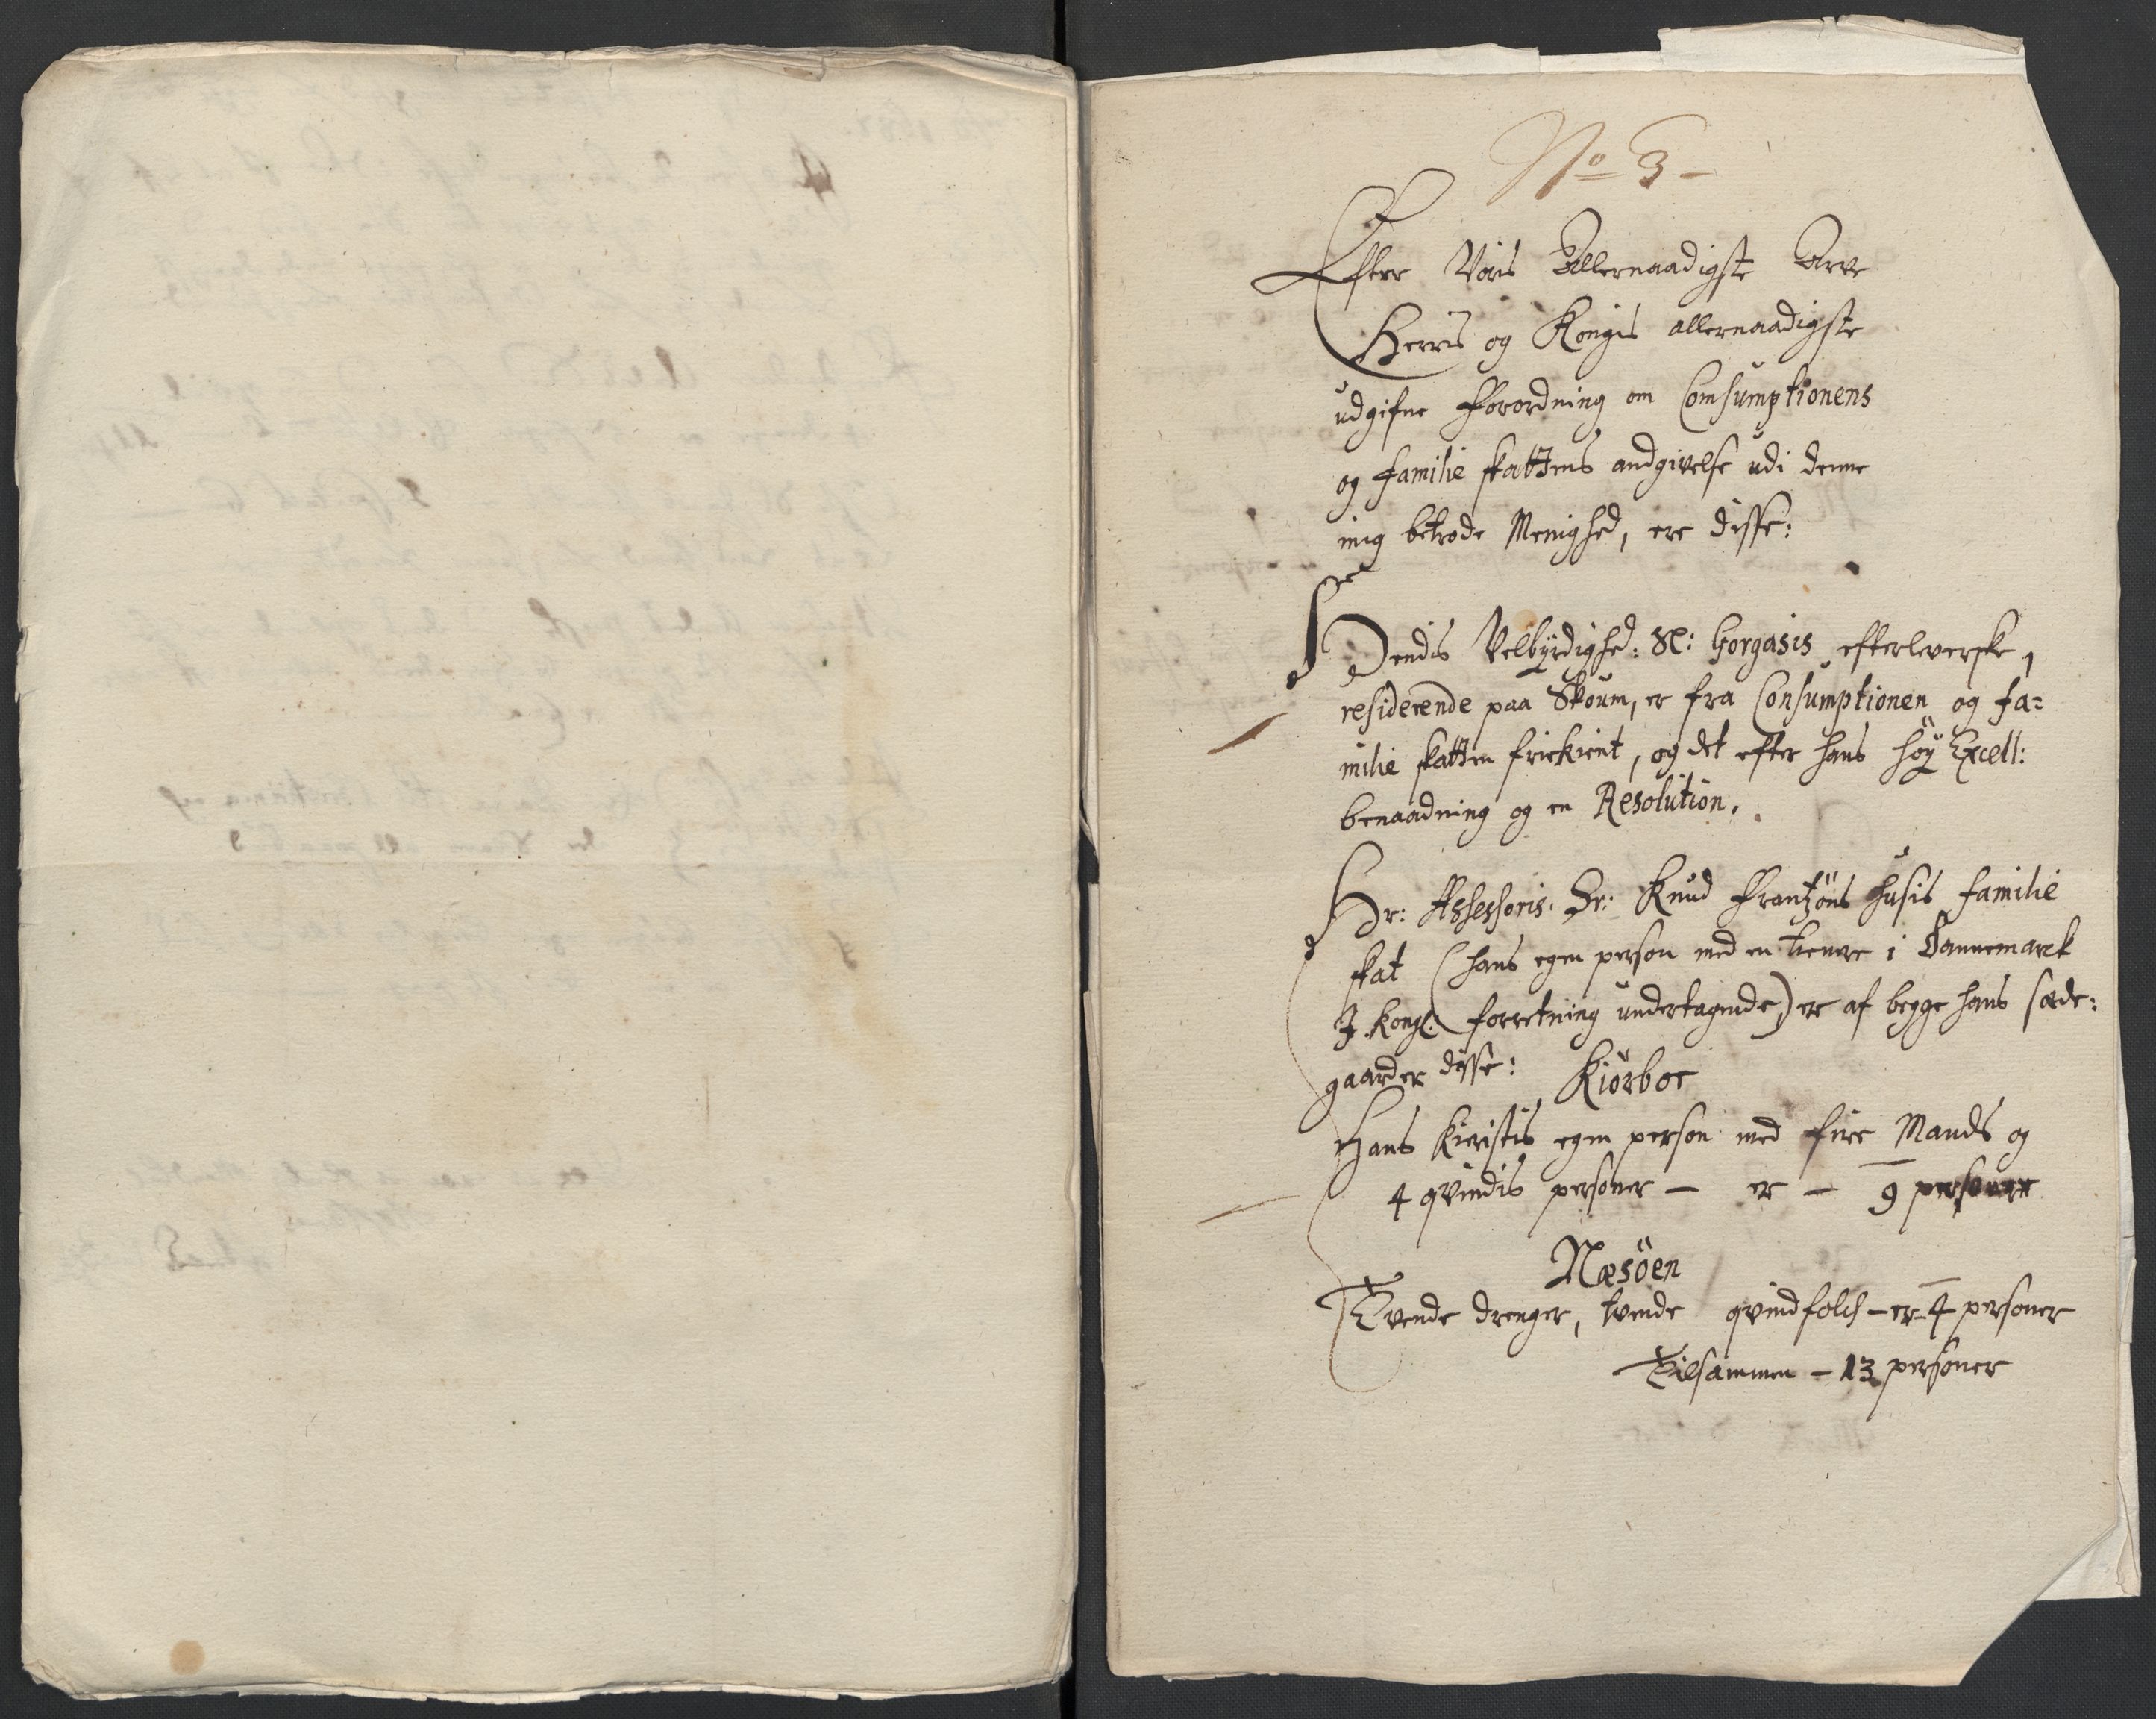 No 3
Efter Voris Allernaadigste Arve
Herris og Kongis allernaadigste
udgifne Forordning om Comsumptionens
og familie skattens andgivelse udi denne
mig betrode Menighed, ere disse:
Hendis Velbyrdighed: Sl: Gorgasis efterleverske,
residerende paa Skoum, er fra Consumptionen og fa=
milie skatten friekient, og det efter hans höÿ Excell:
benaadning og en Resolution.
Hr: Assessoris. Hr: Knud Frantzöns Husis familie
skat (hans egen person med en tienere i Dannemarck
J. Kongl. forretning undertagende,) er af begge hans sæde:
gaarder disse: Kiörboe
Hans Kieristis egen person med fire Mands og
4 qvindis personer – er – 9 personer
Næsöen
Tvende drenger, tvende qvindfolch – er – 4 personer
Tilsammen – 13 personer